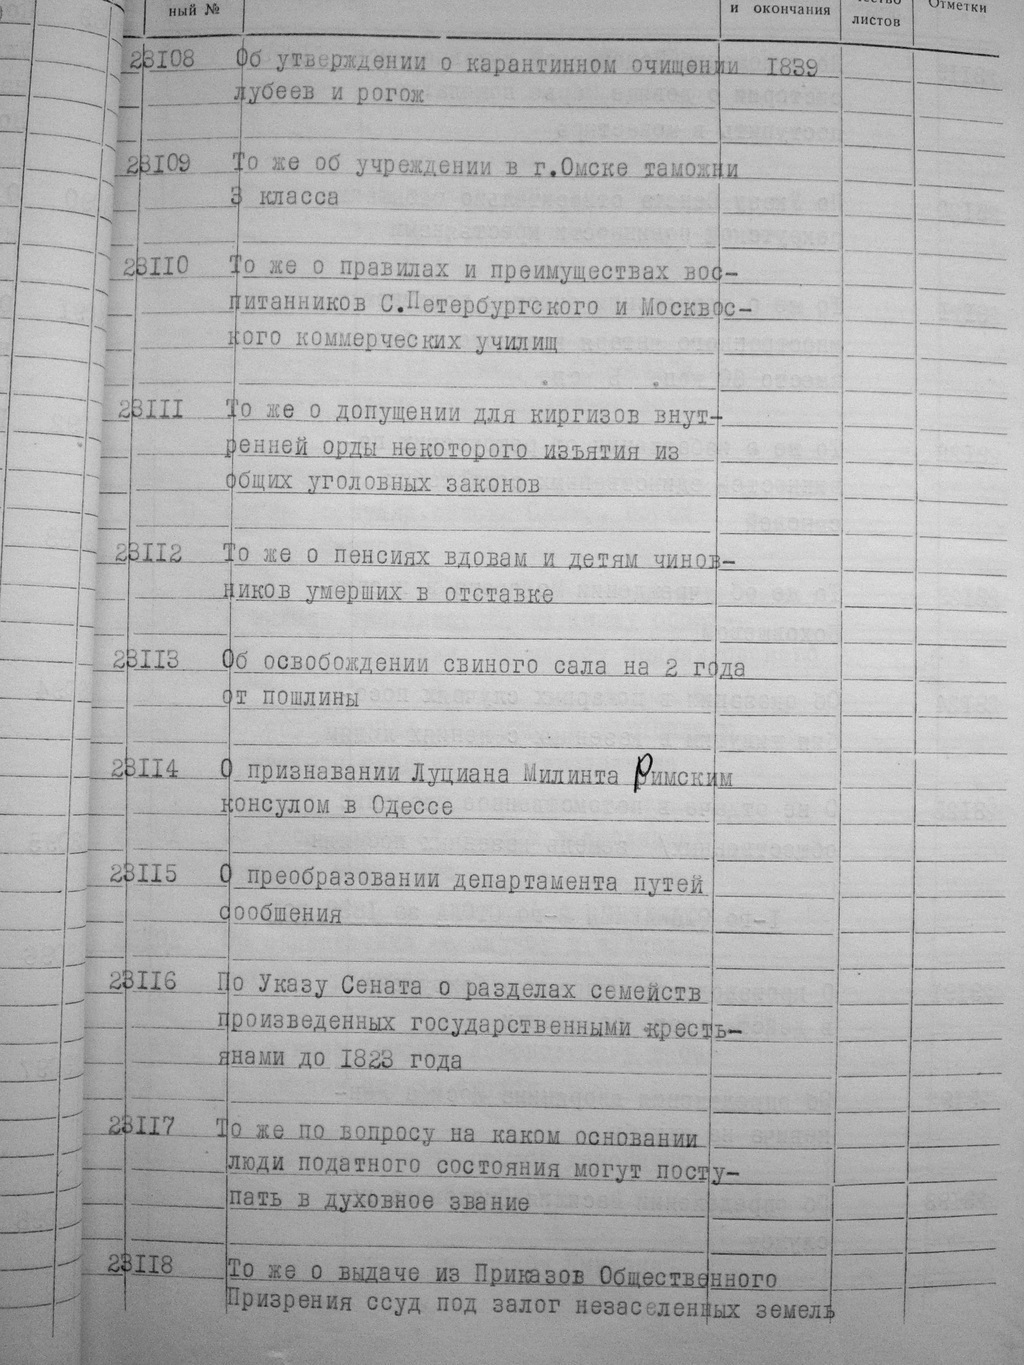 ный №
и окончания
листов
Отметки
23108 Об утверждении о карантинном очищении 1839
лубеев и рогож
23109 То же об учреждении в г.Омске таможни
3 класса
23110 То же о правилах и преимуществах вос-
питанников С.Петербургского и Москвос-
кого коммерческих училищ
23111 То же о допущении для киргизов внут-
ренней орды некоторого изъятия из
общих уголовных законов
23112 То же о пенсиях вдовам и детям чинов-
ников умерших в отставке
23113 Об освобождении свиного сала на 2 года
от пошлины
23114 О признавании Луциана Милинта Римским
консулом в Одессе
23115 О преобразовании департамента путей
сообшения
23116 По Указу Сената о разделах семейств
произведенных государственными кресть-
янами до 1823 года
23117 То же по вопросу на каком основании
люди податного состояния могут посту-
пать в духовное звание
23118 То же о выдаче из Приказов Общественного
Призрения ссуд под залог незаселенных земель